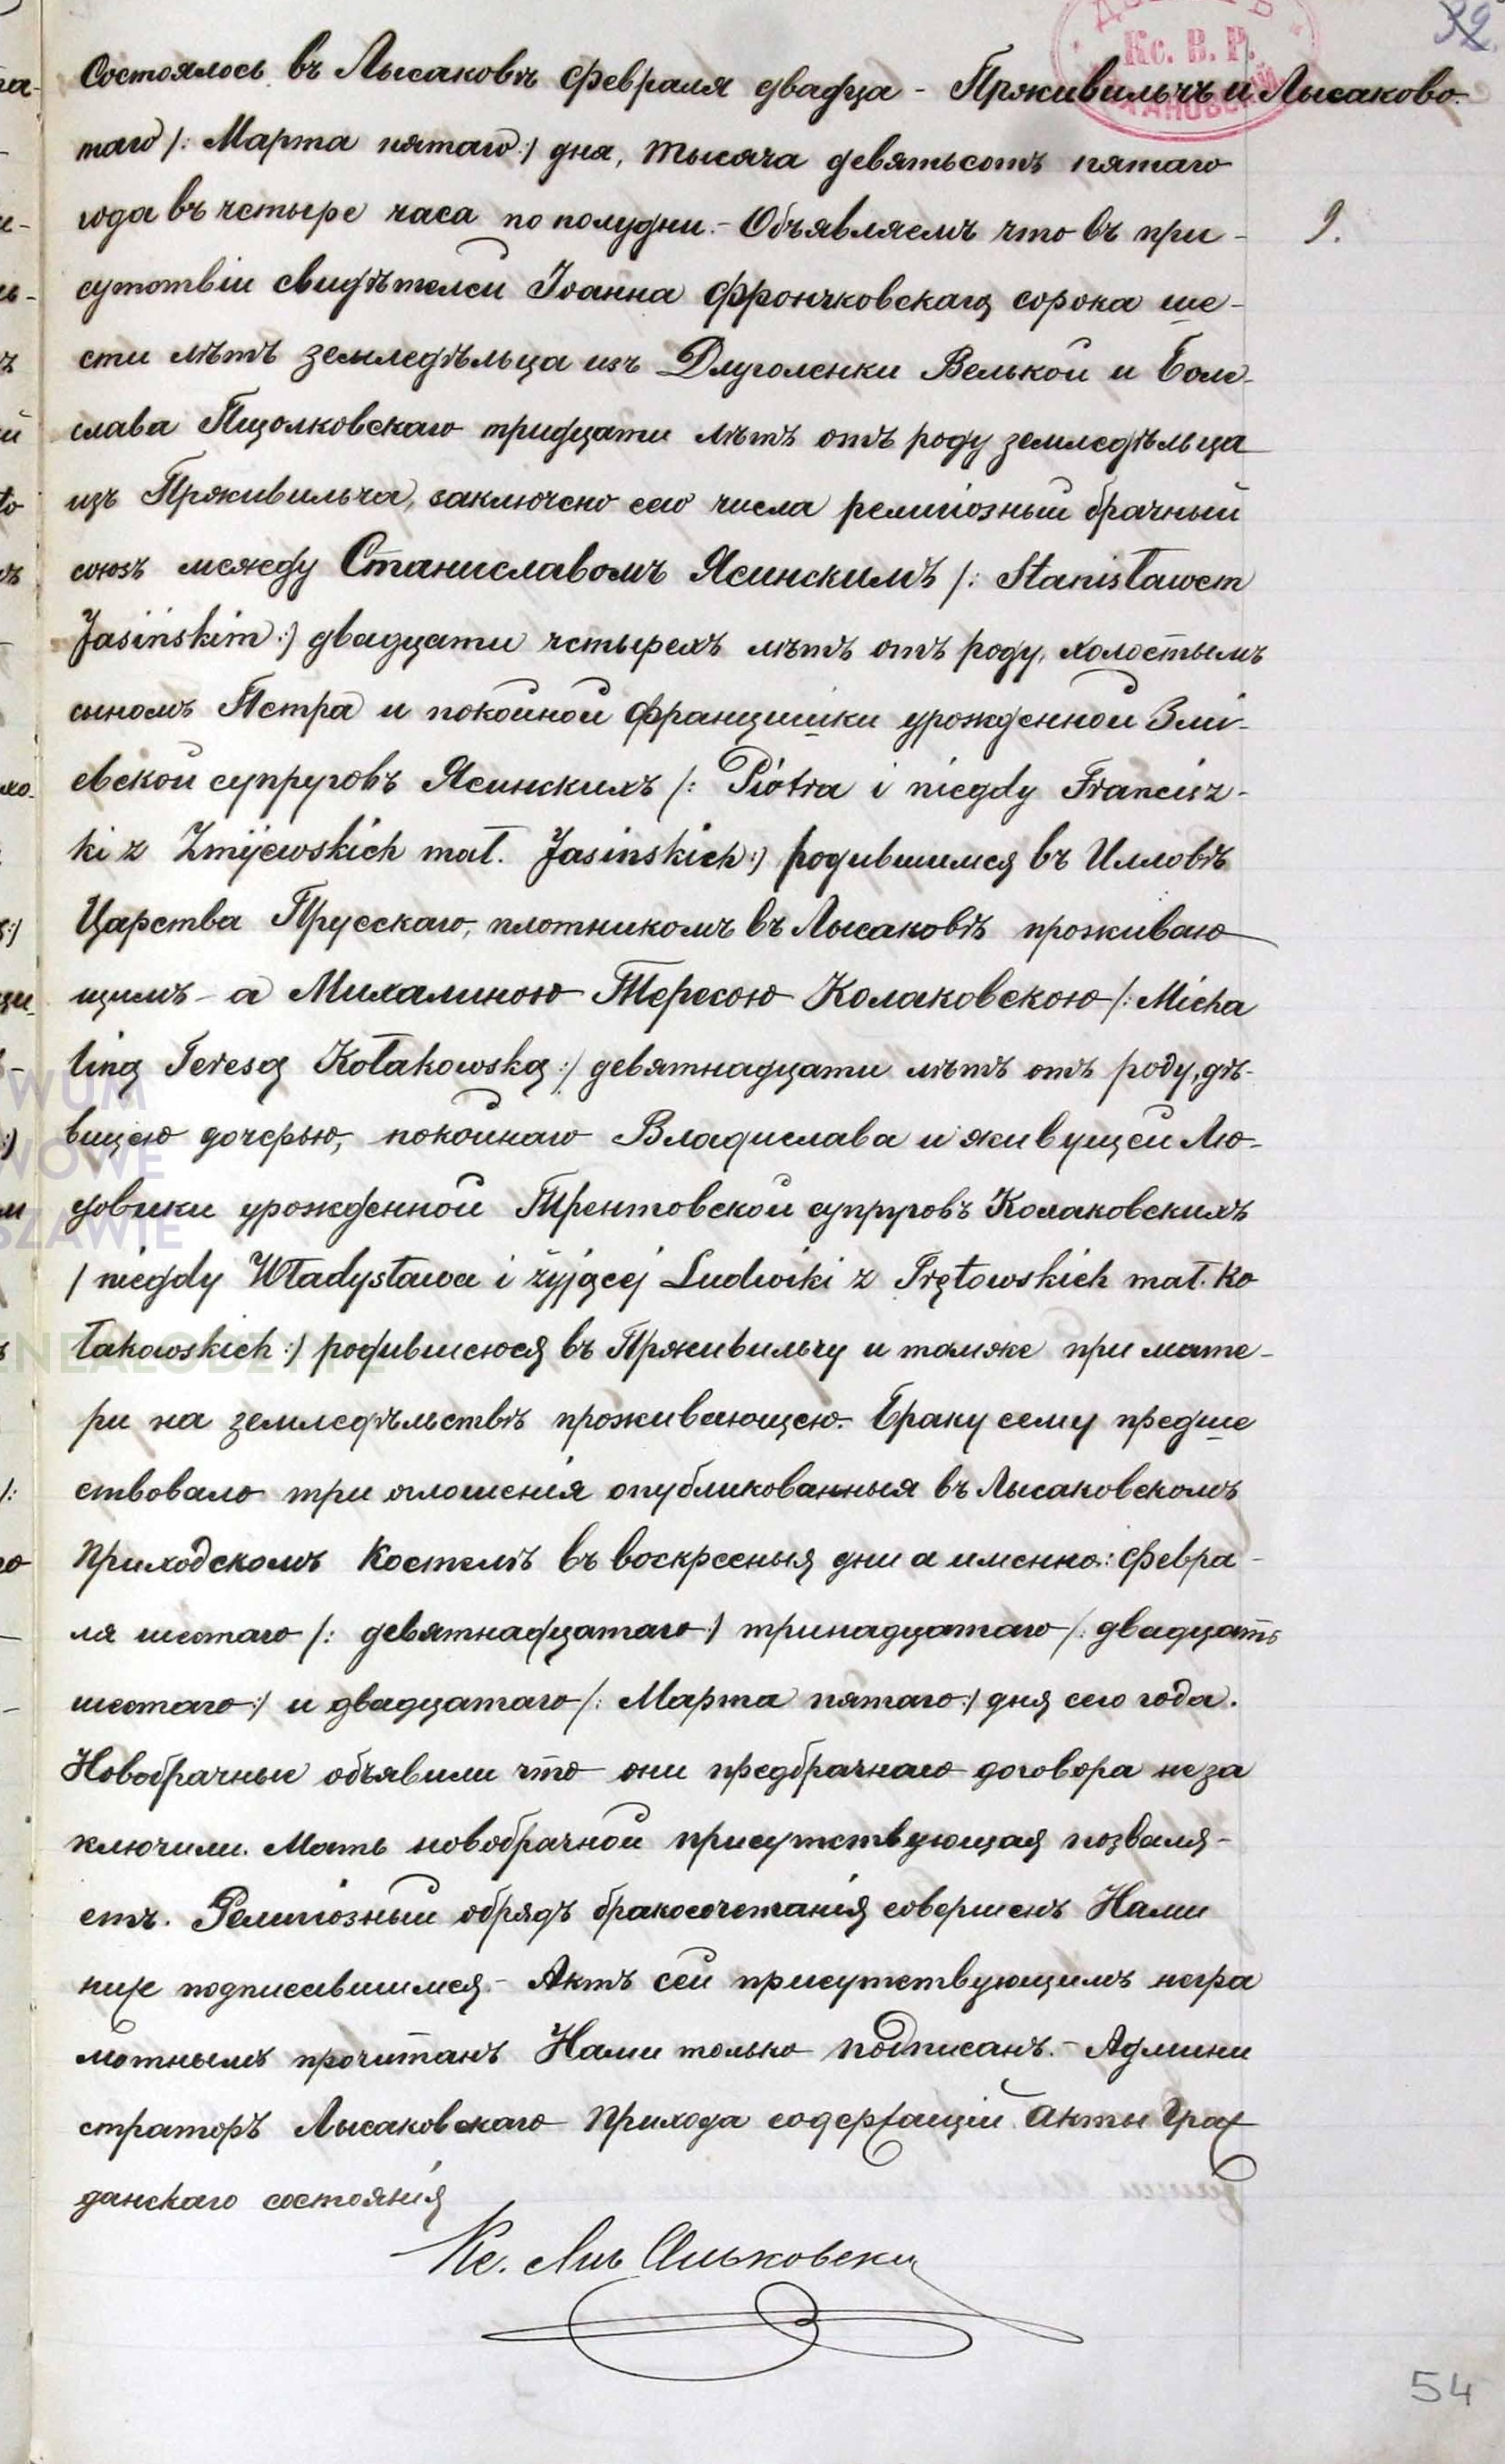 32.
ДОЗОРЪ
Кс. В. Р.
Состоялось въ Лысаковѣ Февраля двадца-
Прживильчъ и Лысаково.
таго /: Марта пятаго :/ дня, тысяча девятьсотъ пятаго
года въ четыре часа по полудни. – Объявляемъ что въ при-
9.
сутствіи свидѣтелей Іоанна Фрончковскаго, сорока ше-
сти лѣтъ земледѣльца изъ Длуголенки Велькой и Боле-
слава Пщолковскаго тридцати лѣтъ отъ роду земледѣльца
изъ Прживильча, заключено сего числа религіозный брачный
союзъ между Станиславомъ Ясинскимъ /: Stanisławem
Jasińskim :/ двадцати четырехъ лѣтъ отъ роду, холостымъ
сыномъ Петра и покойной Францишки урожденной Змі-
евской супруговъ Ясинскихъ /: Piotra i niegdy Francisz-
ki z Żmijewskich mał. Jasinskich :/ родившимся въ Илловѣ
Царства Прусскаго, плотникомъ въ Лысаковѣ проживаю
щимъ – а Михалиною Тересою Колаковскою /: Micha
liną Teresą Kołakowską :/ девятнадцати лѣтъ отъ роду, дѣ-
вицею дочерью, покойнаго Владислава и живущей Лю-
довики урожденной Трентовской супруговъ Колаковскихъ
/ niegdy Władysława i żyjącej Ludwiki z Trętowskich mał. Ko
łakowskich :/ родившеюся въ Прживильчу и тамже при мате-
ри на земледѣльствѣ проживающею. Браку сему предше
ствовало три оглошенія опубликованныя въ Лысаковскомъ
приходскомъ Костелѣ въ воскресныя дни а именно: Февра-
ля шестаго /: девятнадцатаго :/ тринадцатаго /: двадцать
шестаго :/ и двадцатаго /: Марта пятаго :/ дня сего года.
Новобрачные объявили что они предбрачнаго договора не за
ключили. Мать новобрачной присутствующая позваля-
етъ. Религіозный обрядъ бракосочетанія совершенъ Нами
ниже подписавшимся. – Актъ сей присутствующимъ негра
мотнымъ прочитанъ Нами только подписанъ. – Админи
страторъ Лысаковскаго Прихода содержащій Акты Граж
данскаго состоянія
54